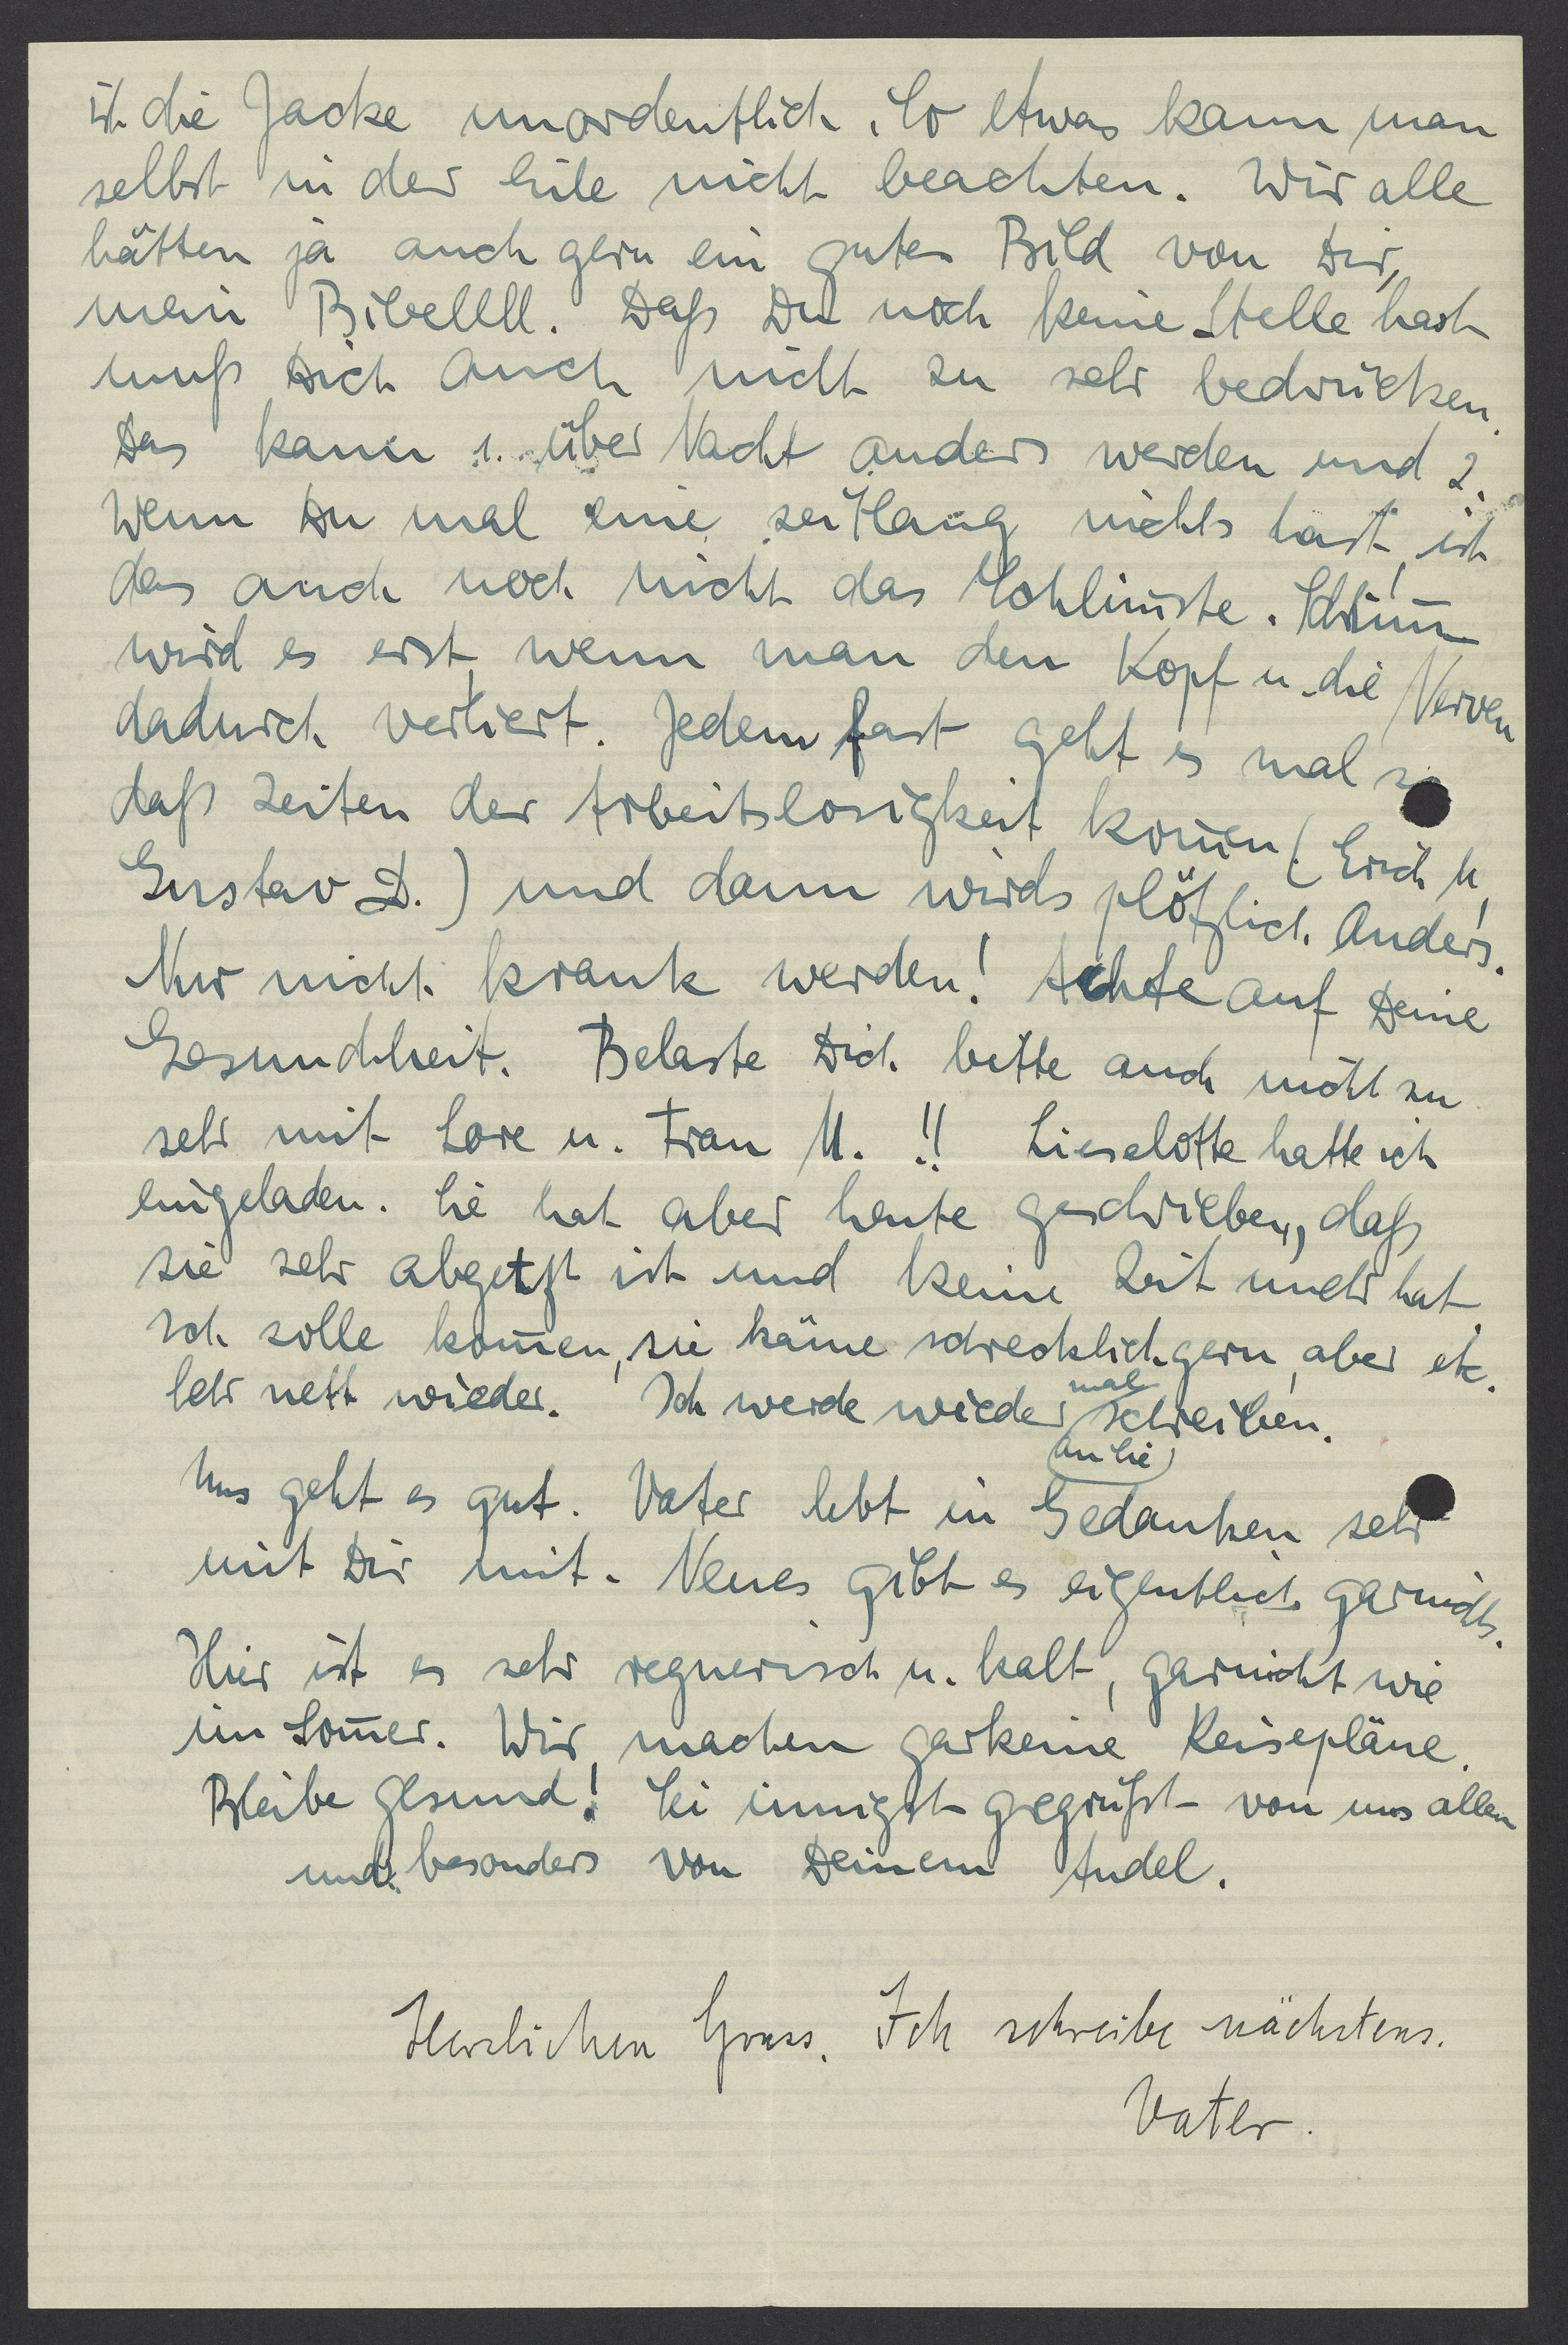 ist die Jacke unordentlich. So etwas kann man
selbst in der Eile nicht beachten. Wir alle
hätten ja auch gern ein gutes Bild von Dir,
mein Bibellll. Daß Du noch keine Stelle hast
muß Dich auch nicht zu sehr bedrücken.
Das kann 1. über Nacht anders werden und 2.
Wenn Du mal eine zeitlang nichts hast, ist
das auch noch nicht das Schlim̅ste. Schlim̅
wird es erst, wenn man den Kopf u. die Nerven
dadurch verliert. Jedem fast geht es mal so
daß Zeiten der Arbeitslosigkeit kom̅en (Erich U,
Gustav D.) und dann wirds plötzlich anders.
Nur nicht krank werden! Achte auf Deine
Gesundheit. Belaste Dich bitte auch nicht zu
sehr mit Lore u. Frau U. !! Lieselotte hatte ich
eingeladen. Sie hat aber heute geschrieben, daß
sie sehr abgehetzt ist und keine Zeit mehr hat.
Ich solle kom̅en, sie käme schrecklich gern, aber etc.
Sehr nett wieder. Ich werde wieder mal schreiben.
an Sie
Uns geht es gut. Vater lebt in Gedanken sehr
mit Dir mit. Neues gibt es eigentlich garnichts.
Hier ist es sehr regnerisch u. kalt, garnicht wie
im Som̅er. Wir machen garkeine Reisepläne.
Bleibe gesund! Sei innigst gegrüßt von uns allen
und besonders von Deinem Andel.
Herzlichen Gruss. Ich schreibe nächstens.
Vater.